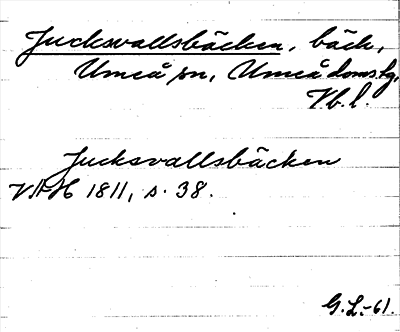 Jucksvallsbäcken, bäck,
Umeå sn, Umeå doms.tg,
Vb.l.
Jucksvallsbäcken
VAH 1811, s. 38.
G.L.-61.